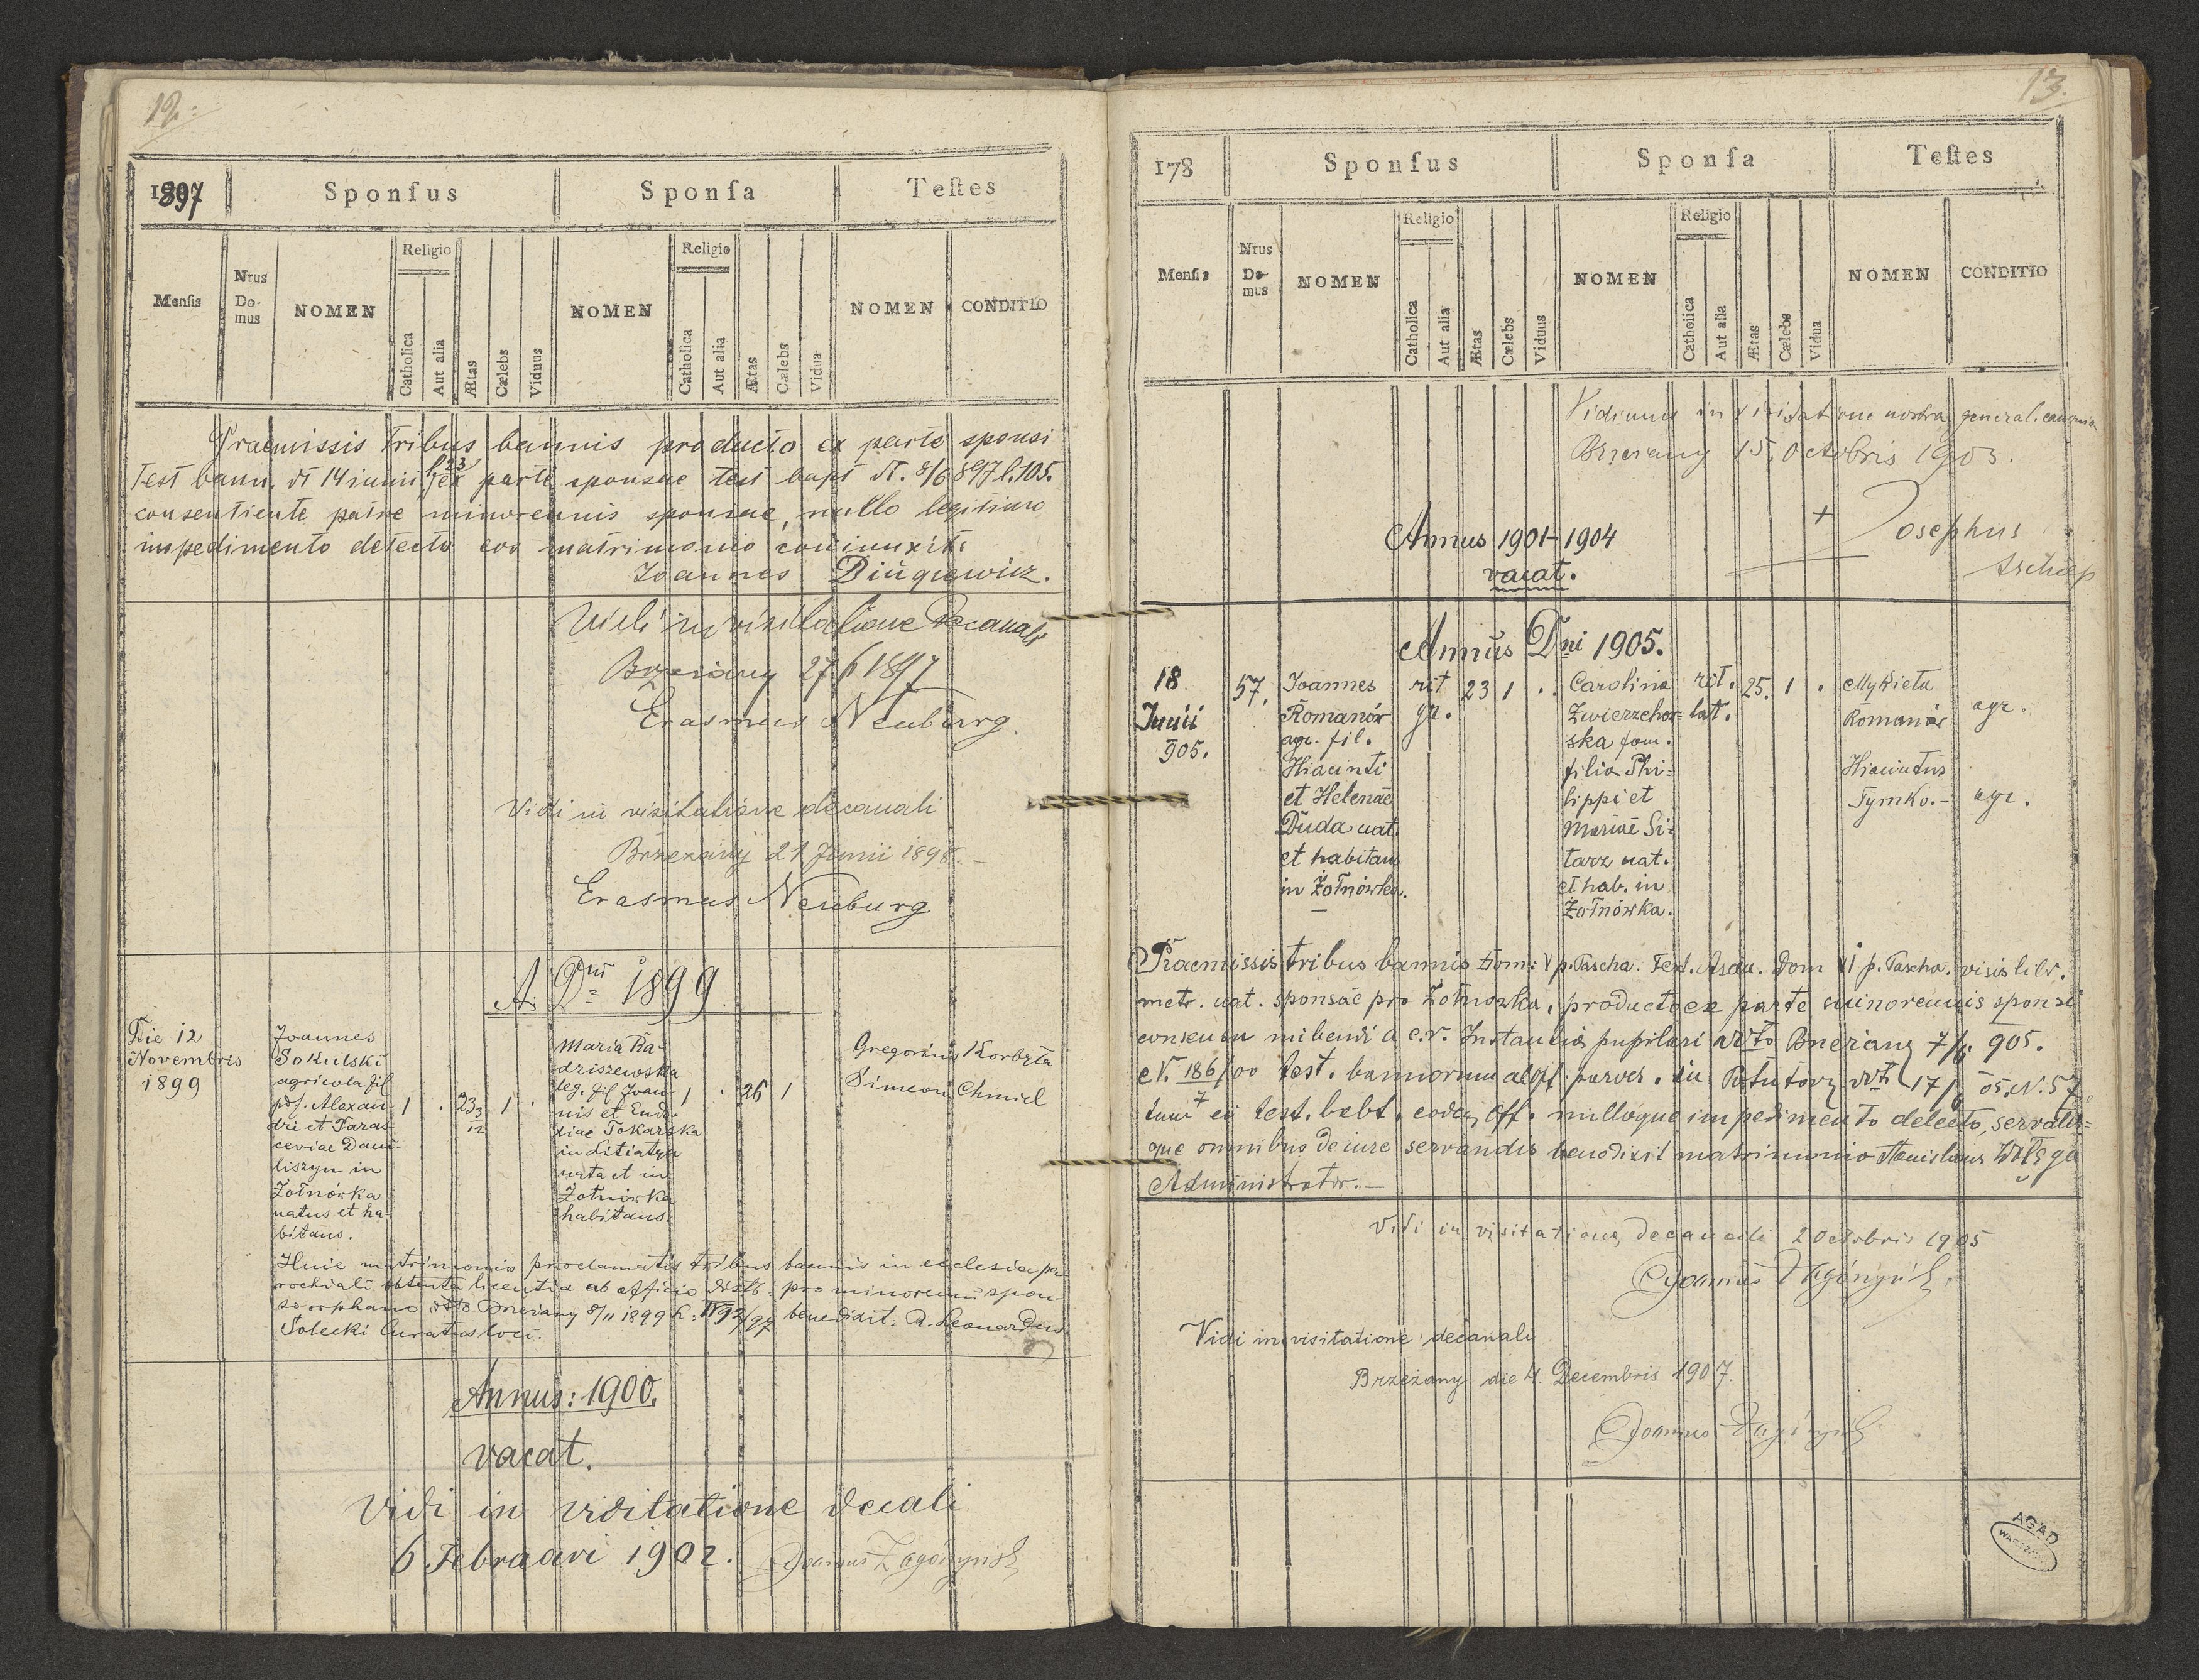 12.
1897
Sponsus
Sponsa
Testes
Mensis
Nrus Domus
NOMEN
Religio
Catholica
Aut alia
Ætas
Cælebs
Viduus
NOMEN
Religio
Catholica
Aut alia
Ætas
Cælebs
Vidua
NOMEN
CONDITIO
Praemissis tribus bannis producto ex parte sponsi
test bann. dt 14 iunii l. 23, ex parte sponsae test bapt dt. 8/6 897 l. 105.
consentiente patre minorennis sponsae, nullo legitimo
impedimento detecto eos matrimonio coniunxit:
Joannes
Vidi in visitatione decanali
Brzeżany 27/6 1897
Erasmus Neuburg.
Vidi in visitatione decanali
Brzeżany 21 Junii 1898. -
Erasmus Neuburg
A. Dni 1899
Die 12
Novembris
1899
Joannes
Sokulski
agricola fil
pdf. Alexan
dri et Paras
ceviae Dani-
liszyn in
Żołnówka
natus et ha
bitans.
1 . 23 3/12 1 .
Maria Ra-
dziszewska
leg. fil Joan
nis et Eudo
xiae Tokarska
in Litiatyn
nata et in
Żołnówka
habitans.
1 . 26 1
Gregorius Korbyła
Simeon Chmiel
Huic matrimonio proclamatis tribus bannis in ecclesia pa
rochiali obtenta licentia ab officio distr. pro minorenni spon-
so orphano ddto Brzeżany 8/11 1899 L: IV 92/97 benedixit: R. Leonardus
Solecki Curatus loci.
Annus: 1900.
vacat.
Vidi in visitatione decali
6 Februari 1902.
13.
178
Sponsus
Sponsa
Testes
Mensis
Nrus Domus
NOMEN
Religio
Catholica
Aut alia
Ætas
Cælebs
Viduus
NOMEN
Religio
Catholica
Aut alia
Ætas
Cælebs
Vidua
NOMEN
CONDITIO
Vidimus in visitatione nostra general. canonica
Brzeżany 15. Octobris 1903.
+ Josephus
Archiep
Annus 1901-1904
vacat.
Annus Dni 1905.
18.
Junii
905.
57.
Joannes
Romanów
agr. fil.
Hiacinti
et Helenae
Duda nat.
et habitans
in Żołnówka.
rit
gr.
23 1 .
Carolina
Zwierzchow=
ska fam.
filia Phi=
lippi et
Mariae Si=
tarz nat.
et hab. in
Żołnówka.
rit.
lat.
25. 1 .
Mykieta
Romanów agr.
Hiacintus
Tymko.- agr.
Praemissis tribus bannis Dom: V p. Pascha. Fest. Ascn. Dom VI p. Pascha. visis libr.
metr. nat. sponsae pro Żołnówka, producto ex parte minorennis sponsi
consensu nubendi a c.r. Instantia pupilari ddto Brzeżany 7/6 905.
N. 186/00 test. bannorum ab off. paroch. in Potutory ddt 17/6 05 N. 57
tum ei test. bapt. eodem off. nulloque impedimento detecto, servatis=
que omnibus de iure servandis benedixit matrimonio Stanislaus
Administrator.-
Vidi in visitatione decanali 2 Octobris 1905
Vidi in visitatione decanali
Brzeżany die 4. Decembris 1907.
AGAD